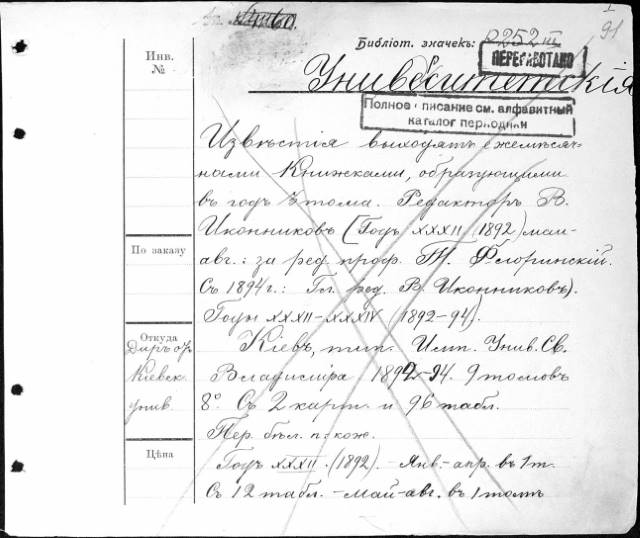 I
91
Библіот. значекъ:
2252 III
ПЕРЕРАБОТАНО
Инв.
№
Университетскія
Полное описание см. алфавитный
каталог периодики
Извѣстія выходятъ ежемѣсяч-
ными книжками, образующими
въ годъ 3 тома. Редакторъ В.
Иконниковъ (Годъ XXXII (1892) май-
По заказу
авг.: за ред. проф. Т. Флоринскій.
Съ 1894 г.: Гл. ред. В. Иконниковъ).
Годы XXXII–XXXIV (1892–94).
Откуда
Даръ отъ
Кіевск.
унив.
Кіевъ, тип. Имп. Унив. Св.
Владиміра 1892–94. 9 томовъ
8° Съ 2 карт. и 96 табл.
Пер. бѣл. п. кож.
Цѣна
Годъ XXXII. (1892). – Янв.-апр. въ 1 т.
Съ 12 табл. – Май-авг. въ 1 томѣ